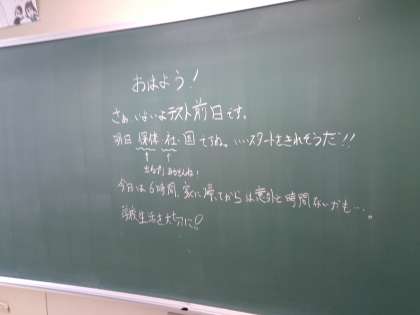 おはよう!
さぁ いよいよテスト前日です。
明日 保体・社・国 ですね。いいスタートをきれそうだ!!
今日は6時間。家に帰ってからは意外と時間ないかも…。
学校生活を大切に!